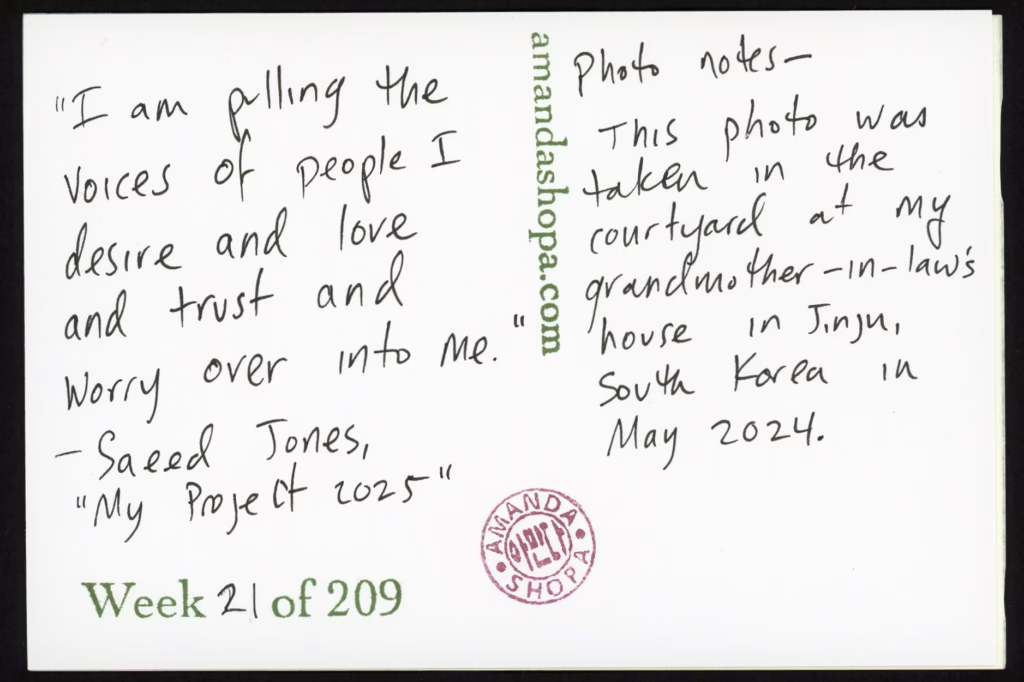 "I am pulling the
voices of people I
desire and love
and trust and
worry over into me."
- Saeed Jones,
"My Project 2025"
Week 21 of 209
amandashopa.com
Photo notes-
This photo was
taken in the
courtyard at my
grandmother-in-law's
house in Jinju,
South Korea in
May 2024.
AMANDA
아만다
SHOPA